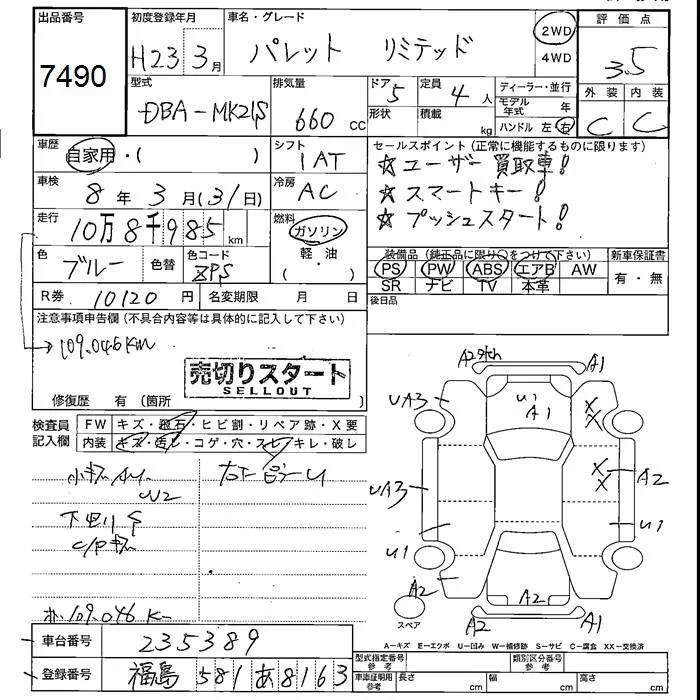 出品番号
7490
初度登録年月
H23 3月
車名・グレード
パレット リミテッド
2WD
4WD
評価点
3.5
外装 内装
C C
型式
DBA-MK21S
排気量
660 cc
ドア 5
形状
定員 4人
積載 kg
ディーラー・並行
モデル年式 年
ハンドル 左 右
車歴
自家用・( )
シフト
1AT
セールスポイント(正常に機能するものに限ります)
☆ユーザー買取車!
☆スマートキー!
☆プッシュスタート!
車検
8年3月(31日)
冷房
AC
走行
10万8千985km
燃料
ガソリン
軽・油
( )
色
ブルー
色替
色コード
装備品(純正品に限り○をつけて下さい)
PS PW ABS エアB AW
SR ナビ TV 本革
新車保証書
有・無
R券 10120円
名変期限 月 日
後日品
注意事項申告欄(不具合内容等は具体的に記入して下さい)
→109,046km
売切りスタート
SELLOUT
修復歴 有(箇所
検査員記入欄
FW キズ・飛石・ヒビ割・リペア跡・X要
内装 キズ・汚し・コゲ・穴・スレ・キレ・破レ
小キズ
W2
下回りS
C/Pキズ
109,046K
A2 A1
UA3
U1
A1
UA3
A2
U1
U1
A2
A2
A2 A1
スペア
A-キズ E-エクボ U-凹み W-補修跡 S-サビ C-腐食 XX-交換済
車台番号
235389
登録番号
福島 581 あ 8163
型式指定番号
参考
類別区分番号
参考
車庫証明用
参考
長さ cm
幅 cm
高さ cm